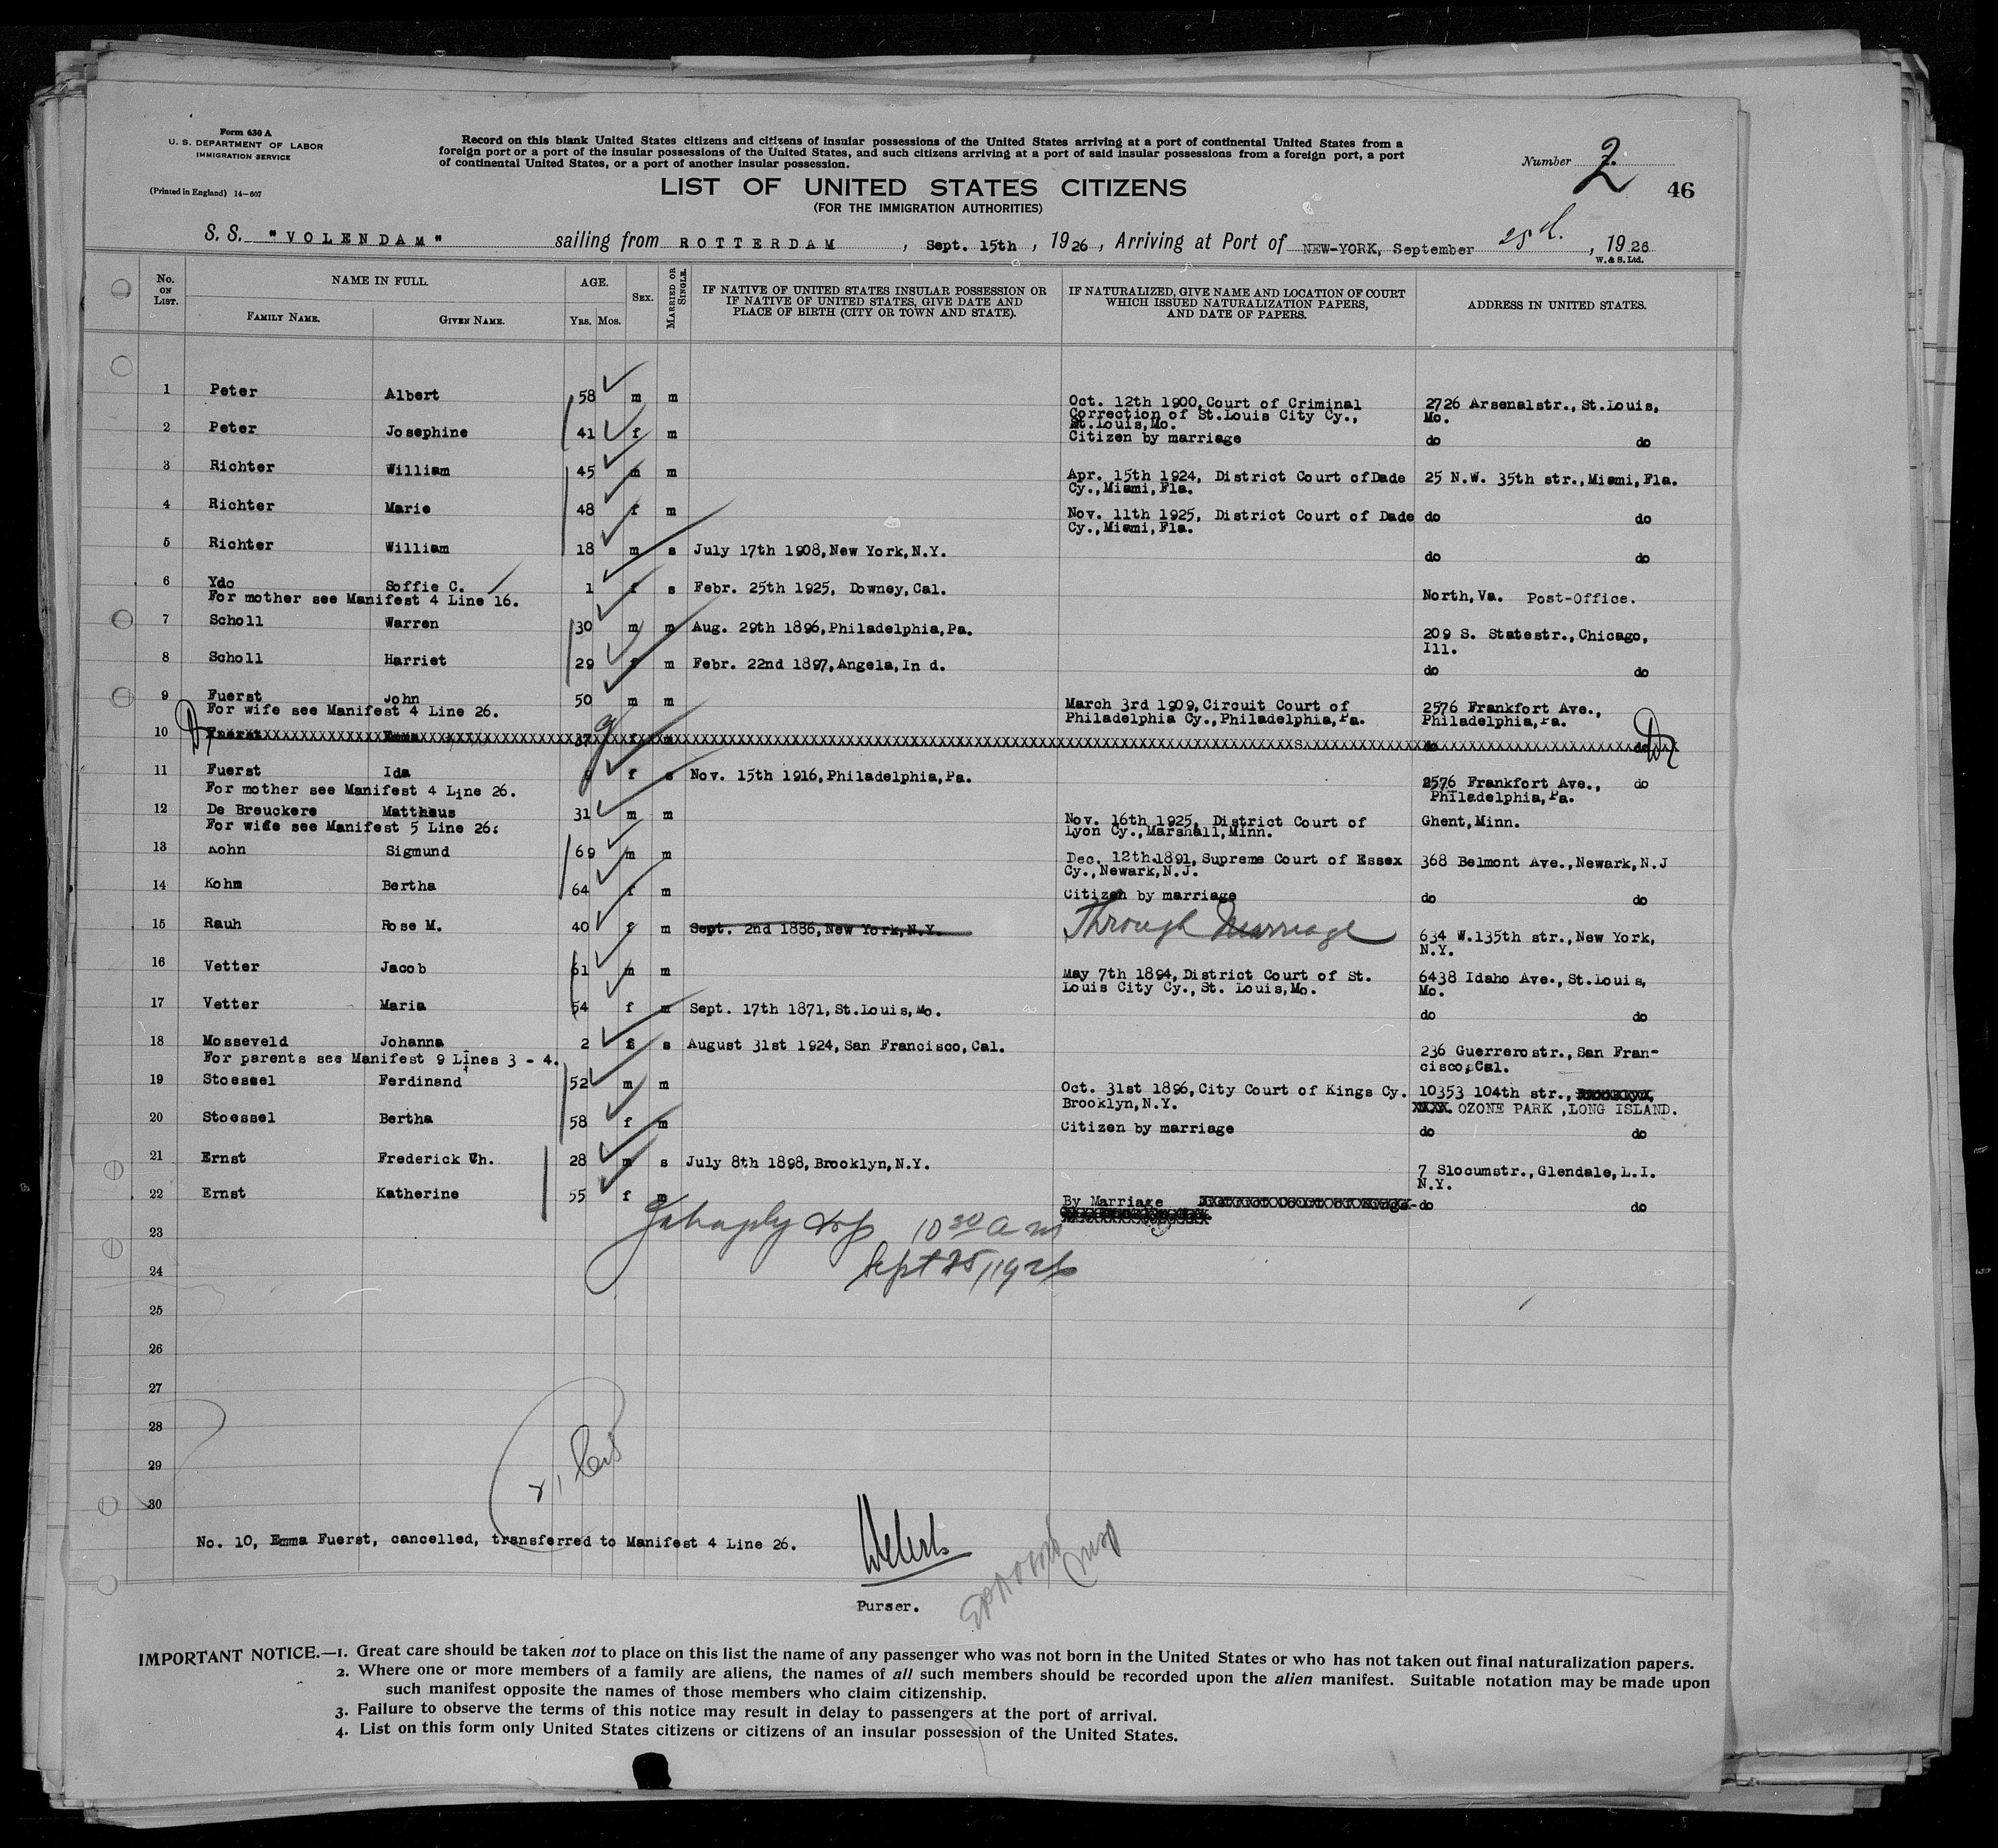 Form 630 A
U. S. DEPARTMENT OF LABOR
IMMIGRATION SERVICE
(Printed in England) 14—607
Record on this blank United States citizens and citizens of insular possessions of the United States arriving at a port of continental United States from a
foreign port or a port of the insular possessions of the United States, and such citizens arriving at a port of said insular possessions from a foreign port, a port
of continental United States, or a port of another insular possession.
Number 2
46
LIST OF UNITED STATES CITIZENS
(FOR THE IMMIGRATION AUTHORITIES)
S. S. "VOLENDAM" sailing from ROTTERDAM, Sept. 15th, 1926, Arriving at Port of NEW-YORK, September 25th, 1926
W. & S. Ltd.
No. ON LIST. NAME IN FULL. AGE. SEX. MARRIED OR SINGLE. IF NATIVE OF UNITED STATES INSULAR POSSESSION OR IF NATIVE OF UNITED STATES, GIVE DATE AND PLACE OF BIRTH (CITY OR TOWN AND STATE). IF NATURALIZED, GIVE NAME AND LOCATION OF COURT WHICH ISSUED NATURALIZATION PAPERS, AND DATE OF PAPERS. ADDRESS IN UNITED STATES.
FAMILY NAME. GIVEN NAME. YRS. MOS.
1 Peter Albert 58 m m Oct. 12th 1900, Court of Criminal 2726 Arsenalstr., St.Louis,
Correction of St.Louis City Cy., Mo.
St.Louis, Mo.
2 Peter Josephine 41 f m Citizen by marriage do do
3 Richter William 45 m m Apr. 15th 1924, District Court ofDade 25 N.W. 35th str., Miami, Fla.
Cy., Miami, Fla.
4 Richter Marie 48 f m Nov. 11th 1925, District Court of Dade do do
Cy., Miami, Fla.
5 Richter William 18 m s July 17th 1908, New York, N.Y. do do
6 Ydo Soffie C. 1 f s Febr. 25th 1925, Downey, Cal. North, Va. Post-Office.
For mother see Manifest 4 Line 16.
7 Scholl Warren 30 m m Aug. 29th 1896, Philadelphia, Pa. 209 S. Statestr., Chicago,
Ill.
8 Scholl Harriet 29 f m Febr. 22nd 1897, Angela, In d. do do
9 Fuerst John 50 m m March 3rd 1909, Circuit Court of 2576 Frankfort Ave.,
For wife see Manifest 4 Line 26. Philadelphia Cy., Philadelphia, Pa. Philadelphia, Pa.
10 Fuerst Emma 37 f m do do
11 Fuerst Ida 9 f s Nov. 15th 1916, Philadelphia, Pa. 2576 Frankfort Ave., do
For mother see Manifest 4 Line 26. Philadelphia, Pa.
12 De Breuckere Mattheus 31 m m Nov. 16th 1925, District Court of Ghent, Minn.
For wife see Manifest 5 Line 26: Lyon Cy., Marshall, Minn.
13 Kohn Sigmund 69 m m Dec. 12th 1891, Supreme Court of Essex 368 Belmont Ave., Newark, N.J
Cy., Newark, N.J.
14 Kohn Bertha 64 f m Citizen by marriage do do
15 Rauh Rose M. 40 f m Sept. 2nd 1886, New York, N.Y. Through Marriage 634 W.135th str., New York,
N.Y.
16 Vetter Jacob 61 m m May 7th 1894, District Court of St. 6438 Idaho Ave., St.Louis,
Louis City Cy., St. Louis, Mo. Mo.
17 Vetter Maria 54 f m Sept. 17th 1871, St.Louis, Mo. do do
18 Mosseveld Johanna 2 s August 31st 1924, San Francisco, Cal. 236 Guerrerostr., San Fran-
For parents see Manifest 9 Lines 3 - 4. cisco, Cal.
19 Stoessel Ferdinand 52 m m Oct. 31st 1896, City Court of Kings Cy. 10353 104th str.,
Brooklyn, N.Y. OZONE PARK, LONG ISLAND.
20 Stoessel Bertha 58 f m Citizen by marriage do do
21 Ernst Frederick Ch. 28 m s July 8th 1898, Brooklyn, N.Y. 7 Slocumstr., Glendale, L.I.
N.Y.
22 Ernst Katherine 55 f m By Marriage do do
23 10 30 a m
24 Sept 25/1926
25
26
27
28
29
30
No. 10, Emma Fuerst, cancelled, transferred to Manifest 4 Line 26.
Purser.
IMPORTANT NOTICE.—1. Great care should be taken not to place on this list the name of any passenger who was not born in the United States or who has not taken out final naturalization papers.
2. Where one or more members of a family are aliens, the names of all such members should be recorded upon the alien manifest. Suitable notation may be made upon
such manifest opposite the names of those members who claim citizenship.
3. Failure to observe the terms of this notice may result in delay to passengers at the port of arrival.
4. List on this form only United States citizens or citizens of an insular possession of the United States.